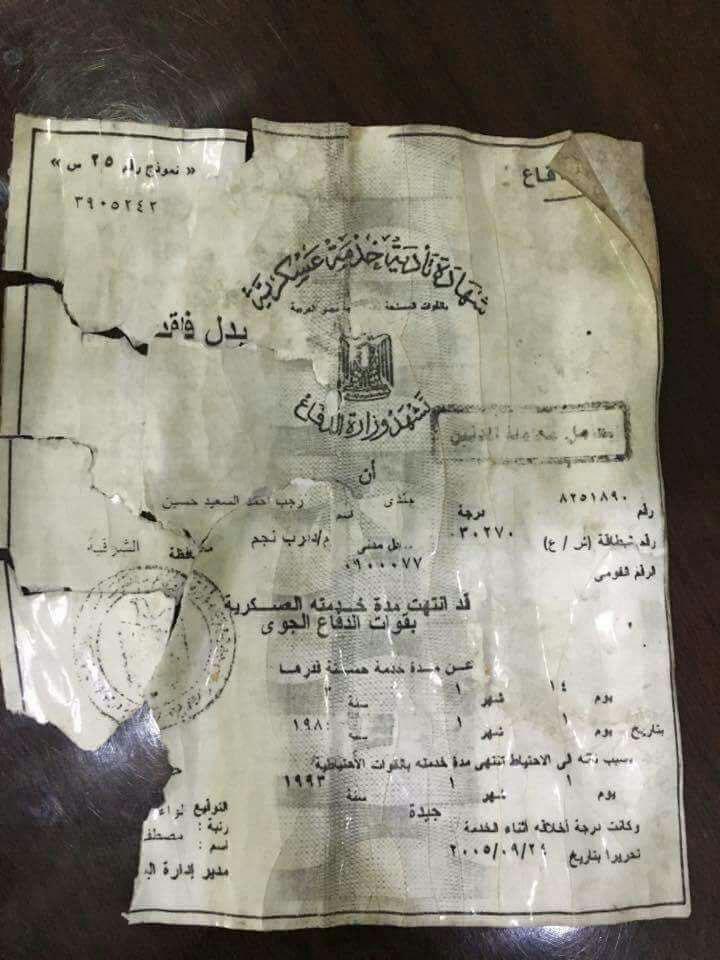 « نموذج رقم ٢٥ س »
٣٩٠٥٢٤٢
شهادة تأدية خدمة عسكرية
بالقوات المسلحة مصر العربية
بدل فاقد
تشهد وزارة الدفاع
أن
رقم ٨٢٥١٨٩٠ درجة جندى اسم رجب احمد السعيد حسين
رقم بطاقة (ش / ع) ٠٣٠٢٧٠ مدنى م/ديرب نجم محافظة الشرقية
الرقم القومى ٠٩٠٠٠٧٧
قد انتهت مدة خدمته العسكرية
بقوات الدفاع الجوى
عن مدة خدمة حسنة قدرها
١٤ يوم ١ شهر سنة
بتاريخ ١ يوم ١ شهر سنة
بسبب نقله الى الاحتياط تنتهى مدة خدمته بالقوات الاحتياطية
١ يوم ١ شهر ١٩٩٣ سنة
وكانت درجة أخلاقه أثناء الخدمة جيدة
تحريرا بتاريخ
التوقيع
رتبة : لواء
اسم :
مدير إدارة